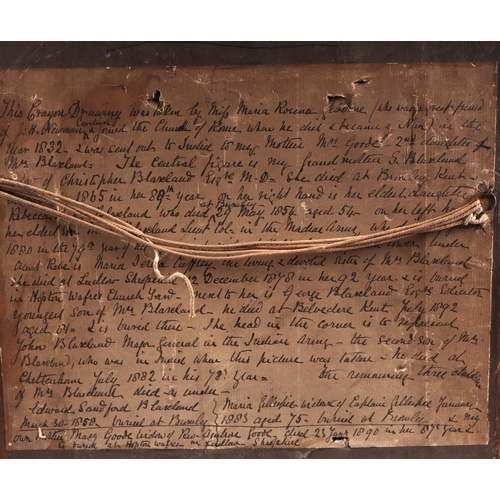 This Crayon Drawing was taken by Miss Maria Rosina (who was a great friend
of J. H. Newman & joined the Church of Rome when he did & became a Nun) in the
Cardinal
year 1832 - & was sent out to India to my Mother Mrs Goode 2nd daughter of
Mrs Blaxland - The Central figure is my grandmother Blaxland
of Christopher Blaxland Esqre M.D - She died at Bromley Kent
1865 in her 89th year on her right hand is her eldest daughter
Rebecca Blaxland who died 29 May 1854 aged 54 on her left
her eldest Blaxland Lieut Col- in the Madras Army, who
1880 in the 79th year of her under
Aunt Rose is Maria the loving & devoted sister of Mrs Blaxland
She died at Ludlow Shropshire December 1878 in her 92 year & is buried
in Hopton Wafers Church Yard - next to her is George Blaxland Esqre Solicitor
youngest son of Mrs Blaxland - he died at Belvedere Kent July 1892
aged & is buried there - The head in the corner is to represent
John Blaxland Major General in the Indian Army - the second son of Mrs
Blaxland, who was in India when this picture was taken - he died at
Cheltenham July 1882 in his 78 year = The remaining three
of Mrs Blaxland died as under -
Edward Sandford Blaxland Maria Gillespie widow of Captain Gillespie January
March 30 1858 buried at Bromley 1883 aged 75 - buried at Bromley & my
own Mother Mary Goode widow of Rev Goode - died 23 1890 in her 87 year &
is buried at Hopton Wafers nr Ludlow - Shropshire